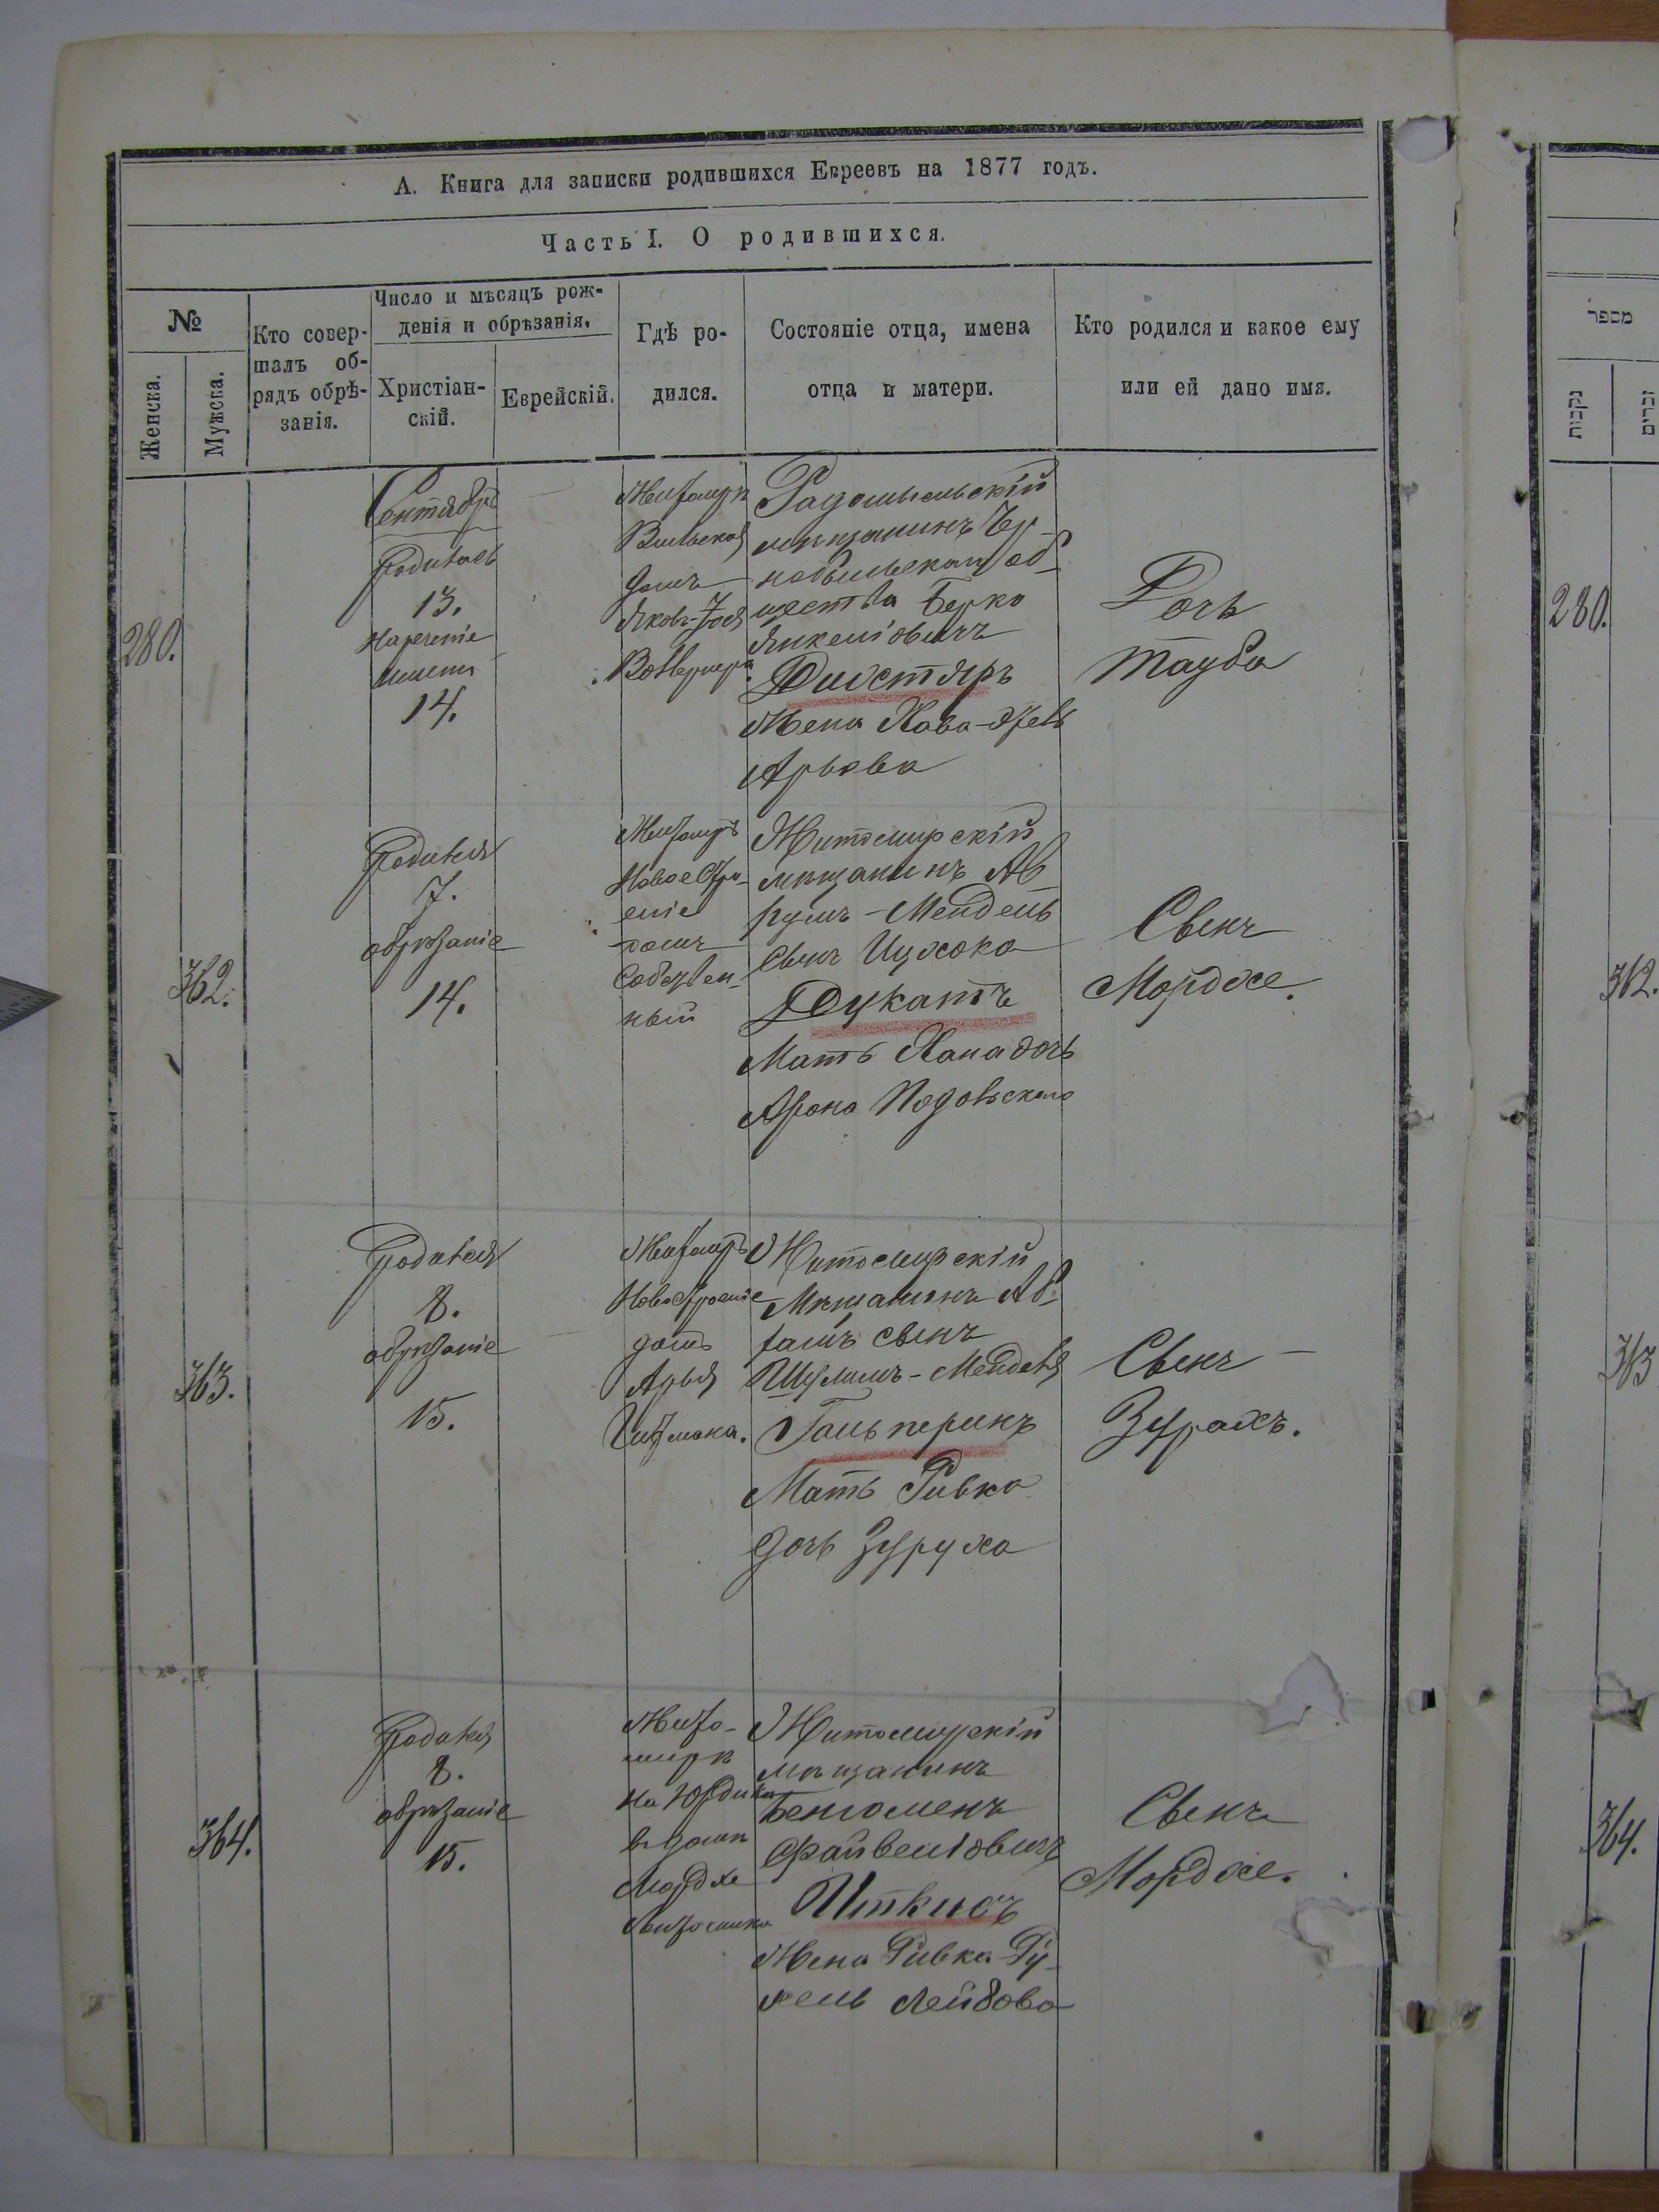 А. Книга для записки родившихся Евреевъ на 1877 годъ.
Часть I. О родившихся.
№
Женска.
Мужска.
Кто совер-
шалъ об-
рядъ обрѣ-
занія.
Число и мѣсяцъ рож-
денія и обрѣзанія.
Христіан-
скій.
Еврейскій.
Гдѣ ро-
дился.
Состояніе отца, имена
отца и матери.
Кто родился и какое ему
или ей дано имя.
280.
Сентябрь
Родилась
13.
Нареченіе
имени
14.
Житомирѣ
Вильская
домъ
Радомысльскій
мѣщанинъ Чер-
нобыльскаго об-
щества Берко
Янкеліовичъ
Дистяръ
Жена Хава-
Арьева
Дочь
Тауба
362.
Родился
7.
обрѣзаніе
14.
Житомиръ
Новое Стро-
еніе
домъ
Собствен-
ный
Житомирскій
мѣщанинъ Ав-
румъ-Мендель
Сынъ Ицхока
Дукатъ
Мать Хана дочь
Арона
Сынъ
Мордхе.
363.
Родился
8.
обрѣзаніе
15.
Житомиръ
Новостроеніе
домъ
Арья
Житомирскій
Мѣщанинъ Аб-
рамъ сынъ
Шулимъ-Менделя
Гальперинъ
Мать Ривка
дочь Зуруха
Сынъ
Зурахъ.
364.
Родился
8.
обрѣзаніе
15.
Жито-
мирѣ
на Юрдика
въ домѣ
Мордхе
Житомирскій
мѣщанинъ
Беніоменъ
Файвеліовичъ
Иткисъ
Жена Ривка-Ру-
хель Лейбова
Сынъ
Мордхе.
מספר
נקבות
זכרים
280.
362.
363
364.